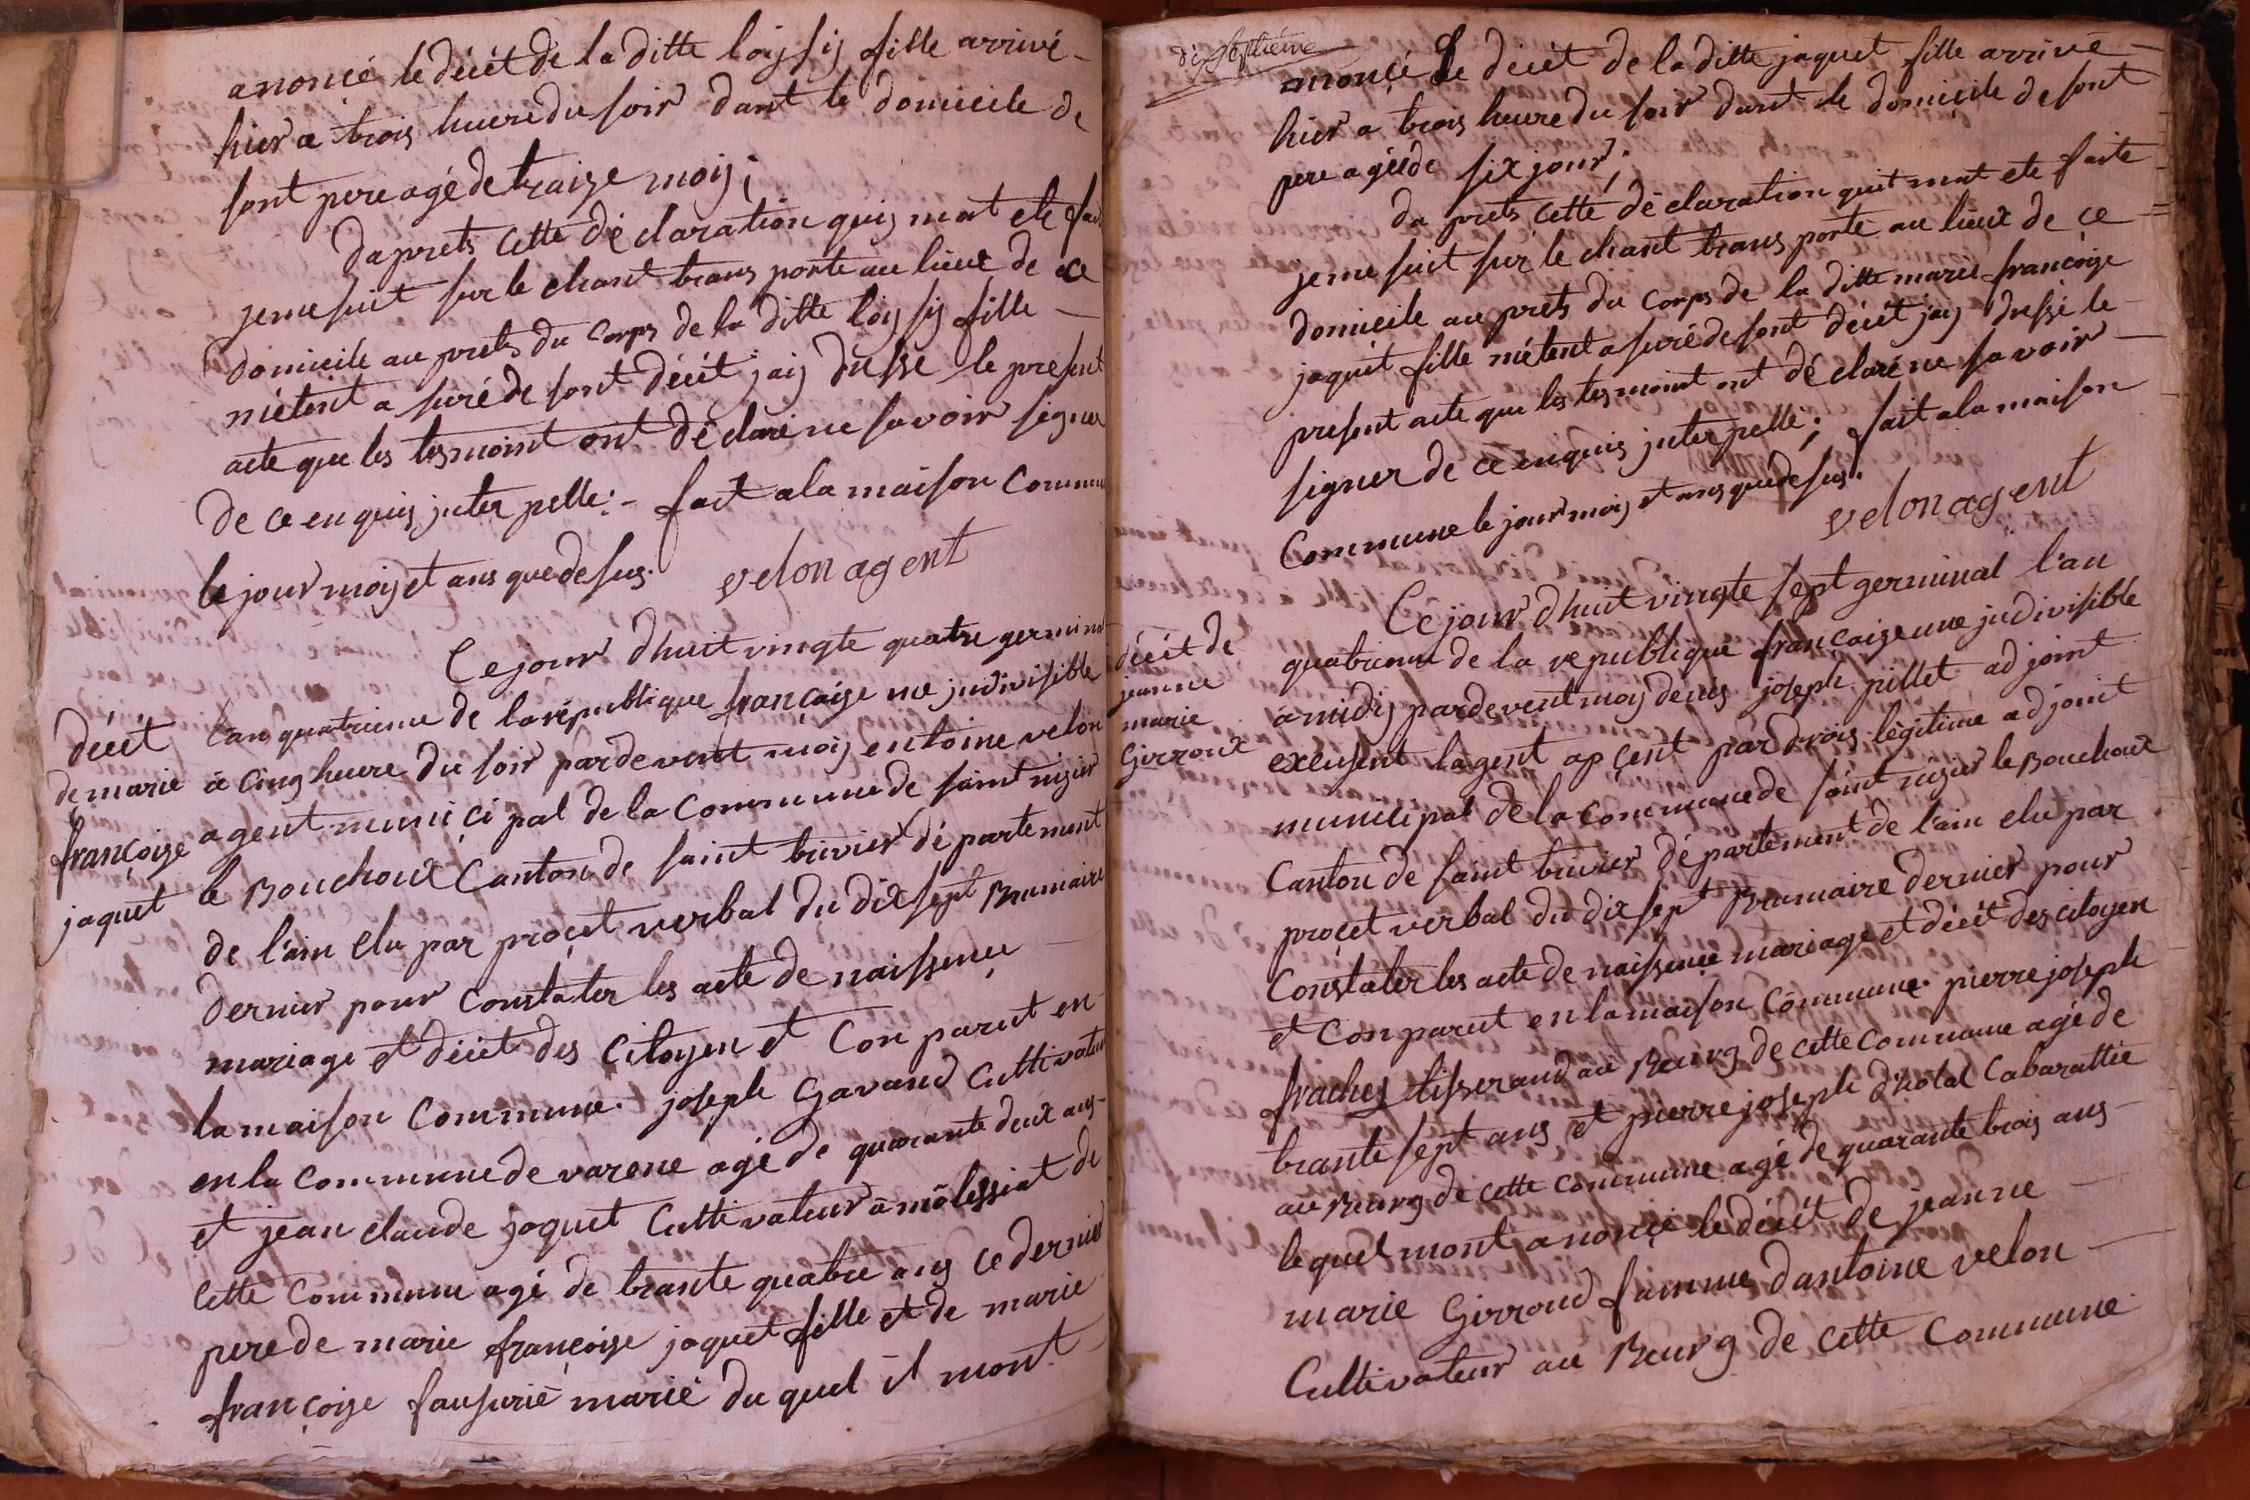 anoncé le décét de la ditte loisſiſ fille arrivé
hier a trois heure du ſoir dant le domicile de
ſont pere agé de traize mois ;
da prets cette déclaration quis mat ete fait
je me ſuit ſur le chant trans porte au lieux de ce
domicile au prets du corps de la ditte loisſiſ fille
métent a ſuré de ſont décét jais dresse le preſent
acte que les tesmoint ont déclaré ne ſavoir signer
de ce en quis juter pellé : fait a la maiſon commu
le jour mois et ans que deſus. velon agent
décét
de marie
françoise
jaquet
Ce jour d'huit vingte quatre germinal
l'an quatrieme de la république françaiſe une jndiviſible
à cinq heure du ſoir pardevent mois entoine velon
agent munici pal de la commune de ſaint nizier
le Bouchoux Canton de ſaint trivier département
de l'ain elu par procet verbal du dix ſept Brumaire
dernier pour constater les acte de naiſſence
mariage et décét des citoyen et Con parut en
la maiſon commune. joſeph Gavand Cultivateur
en la commune de varene agé de quarante deux ans
et jean claude jaquet Cultivateur à môlessiat de
cette commune agé de trante quatre ans ce dernier
pere de marie françoiſe jaquet fille et de marie
françoiſe fauſurié marié du quel il mont
dix ſeptieme
anoncé Le decét de la ditte jaquet fille arrivé
hier a trois heure du ſoir dant le domicile de ſont
pere agé de ſix jour ;
da prets cette déclaration quit mat ete faite
je me ſuit ſur le chant trans porte au lieux de ce
domicile au prets du corps de la ditte marie françoiſe
jaquet fille métent a ſuré de ſont décét jais dreſſé le
preſent acte que les tesmoint ont déclaré ne ſavoir
signer de ce enquis juter pellé ; fait a la maiſon
Commune le jour mois et ans que deſus.
velon agent
décét de
jeanne
marie
Girroux
Ce jour d'huit vingte ſept germinal l'an
quatrieme de la république françaiſe une jndiviſible
à midis pardevent mois denis joſeph pillet adjoint
exeuſent lagent apcent par drois légitime adjoint
municipal de la commune de ſaint nizier le Bouchoux
Canton de ſaint trivier département de l'ain elu par
procet verbal du dix ſept Brumaire dernier pour
Constater les acte de naiſſence mariage et décét des citoyen
et Con parut en la maiſon commune. pierre joſeph
frachey tiſſerand au Bourg de cette commune agé de
trante ſept ans et pierre joſeph d'hotal Cabarattie
au Bourg de cette commune agé de quarante trois ans
lequel mont anoncé le décét de jeanne
marie Girroud famme d'antoine velon
Cultivateur au Bourg de cette commune